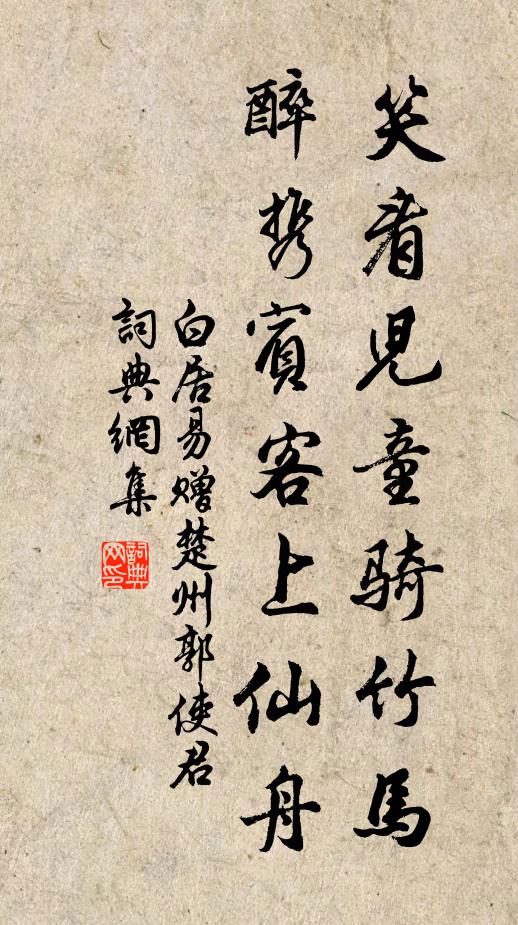 笑看兒童騎竹馬
醉携賓客上仙舟
白居易贈楚州郭使君
詞典網集
詞典網印